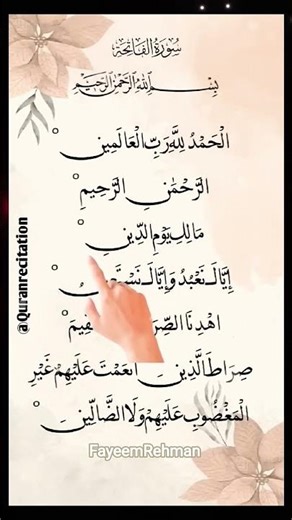 سُورَةُ الْفَاتِحَةِ
بِسْمِ اللهِ الرَّحْمٰنِ الرَّحِيْمِ
الْحَمْدُ لِلَّهِ رَبِّ الْعَالَمِينَ
الرَّحْمٰنِ الرَّحِيْمِ
مَالِكِ يَوْمِ الدِّينِ
إِيَّاكَ نَعْبُدُ وَإِيَّاكَ
اهْدِنَا
صِرَاطَ الَّذِينَ انْعَمْتَ عَلَيْهِمْ غَيْرِ
الْمَغْضُوبِ عَلَيْهِمْ وَلَا الضَّالِّينَ
@Quranrecitation
FayeemRehman